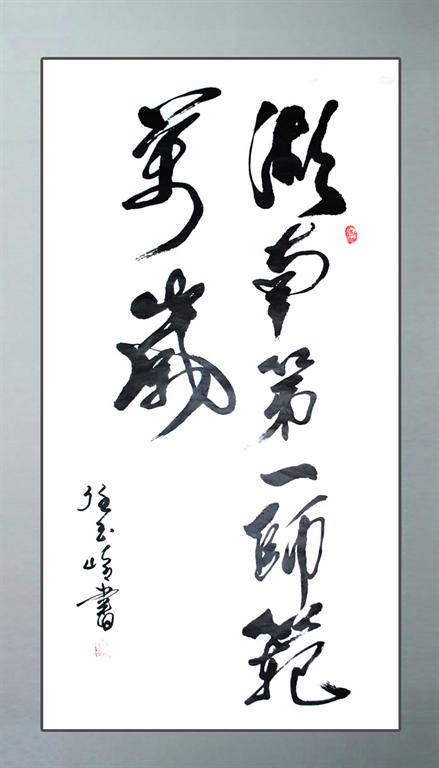 湖南第一師範
萬歲
玉書